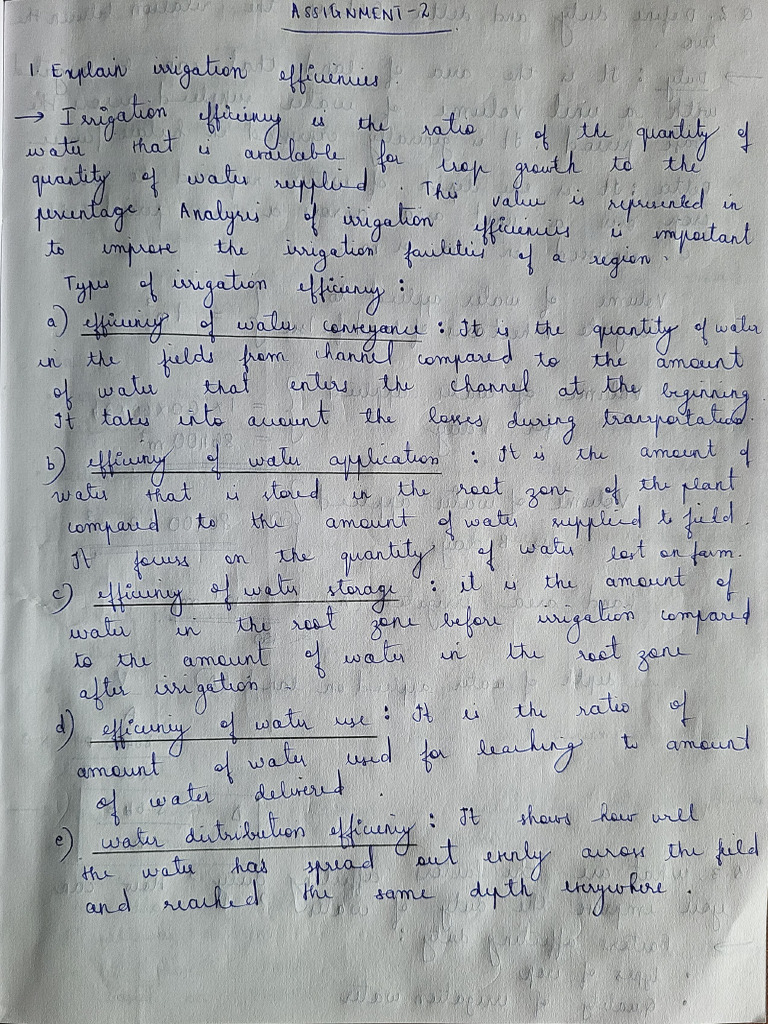 ASSIGNMENT-2
1. Explain irrigation efficiencies.
→ Irrigation efficiency is the ratio of the quantity of
water that is available for crop growth to the
quantity of water supplied. This value is represented in
percentage. Analysis of irrigation efficiencies is important
to improve the irrigation facilities of a region.
Types of irrigation efficiency :
a) efficiency of water conveyance : It is the quantity of water
in the fields from channel compared to the amount
of water that enters the channel at the beginning
It takes into account the losses during transportation.
b) efficiency of water application : It is the amount of
water that is stored in the root zone of the plant
compared to the amount of water supplied to field.
It focuses on the quantity of water lost on farm.
c) efficiency of water storage : it is the amount of
water in the root zone before irrigation compared
to the amount of water in the root zone
after irrigation
d) efficiency of water use : It is the ratio of
amount of water used for leaching to amount
of water delivered.
e) water distribution efficiency : It shows how well
the water has spread out evenly across the field
and reached the same depth everywhere.